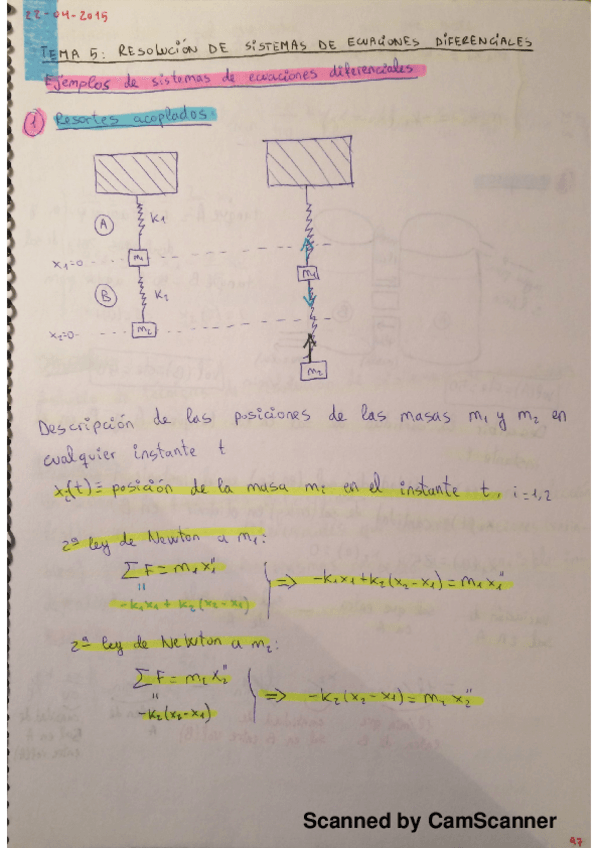 22-04-2015
TEMA 5: RESOLUCIÓN DE SISTEMAS DE ECUACIONES DIFERENCIALES
Ejemplos de sistemas de ecuaciones diferenciales
1 Resortes acoplados
A K1
x1=0 m1 m1
B K2
x2=0 m2
m2
Descripción de las posiciones de las masas m1 y m2 en
cualquier instante t
xi(t)= posición de la masa mi en el instante t, i=1,2
2ª ley de Newton a m1:
∑F = m1x1'' ⇒ -k1x1+k2(x2-x1) = m1x1''
"
-k1x1 + k2(x2-x1)
2ª ley de Newton a m2:
∑F = m2x2'' ⇒ -k2(x2-x1) = m2x2''
"
-k2(x2-x1)
Scanned by CamScanner
97